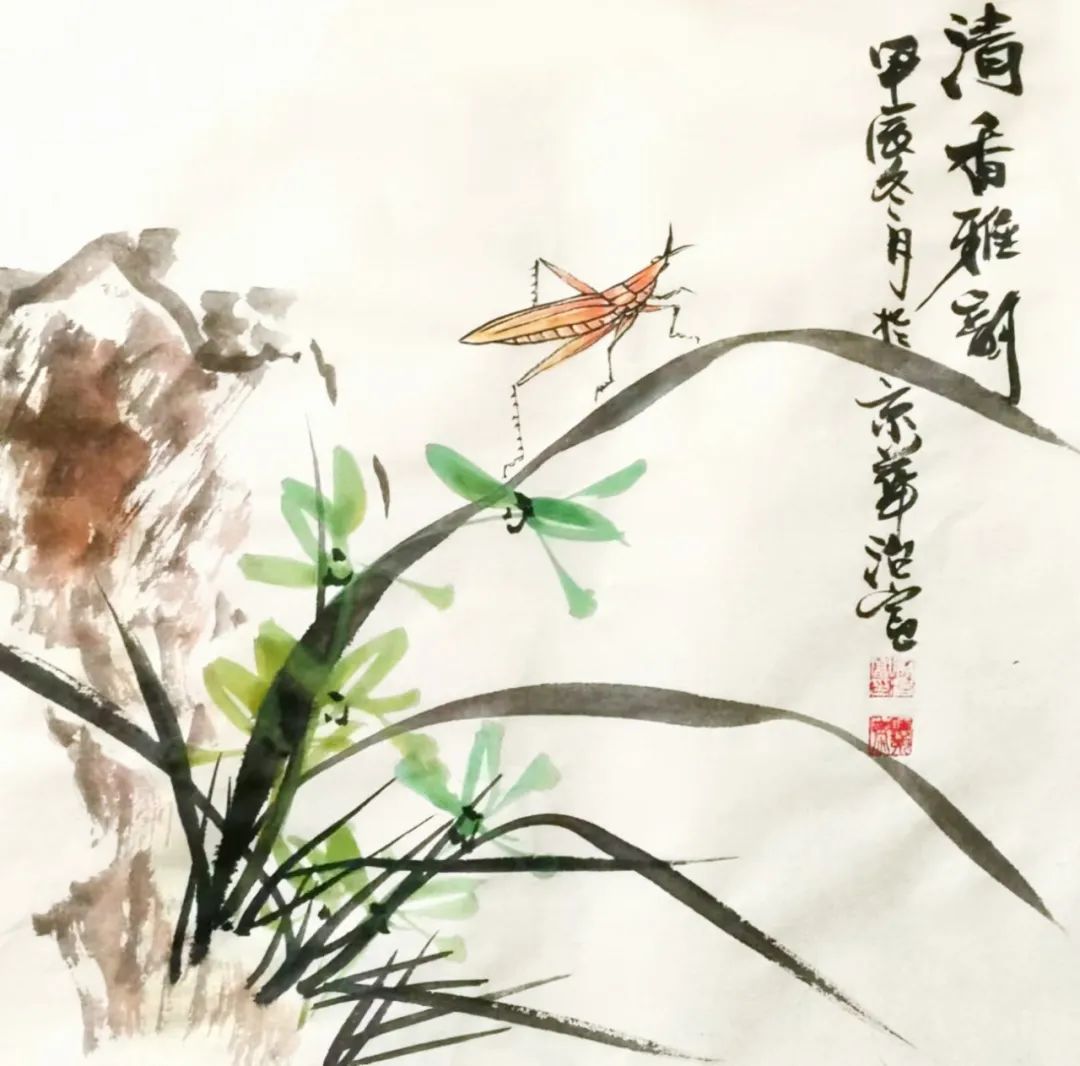 清香雅韵
甲辰冬月於京华治宫